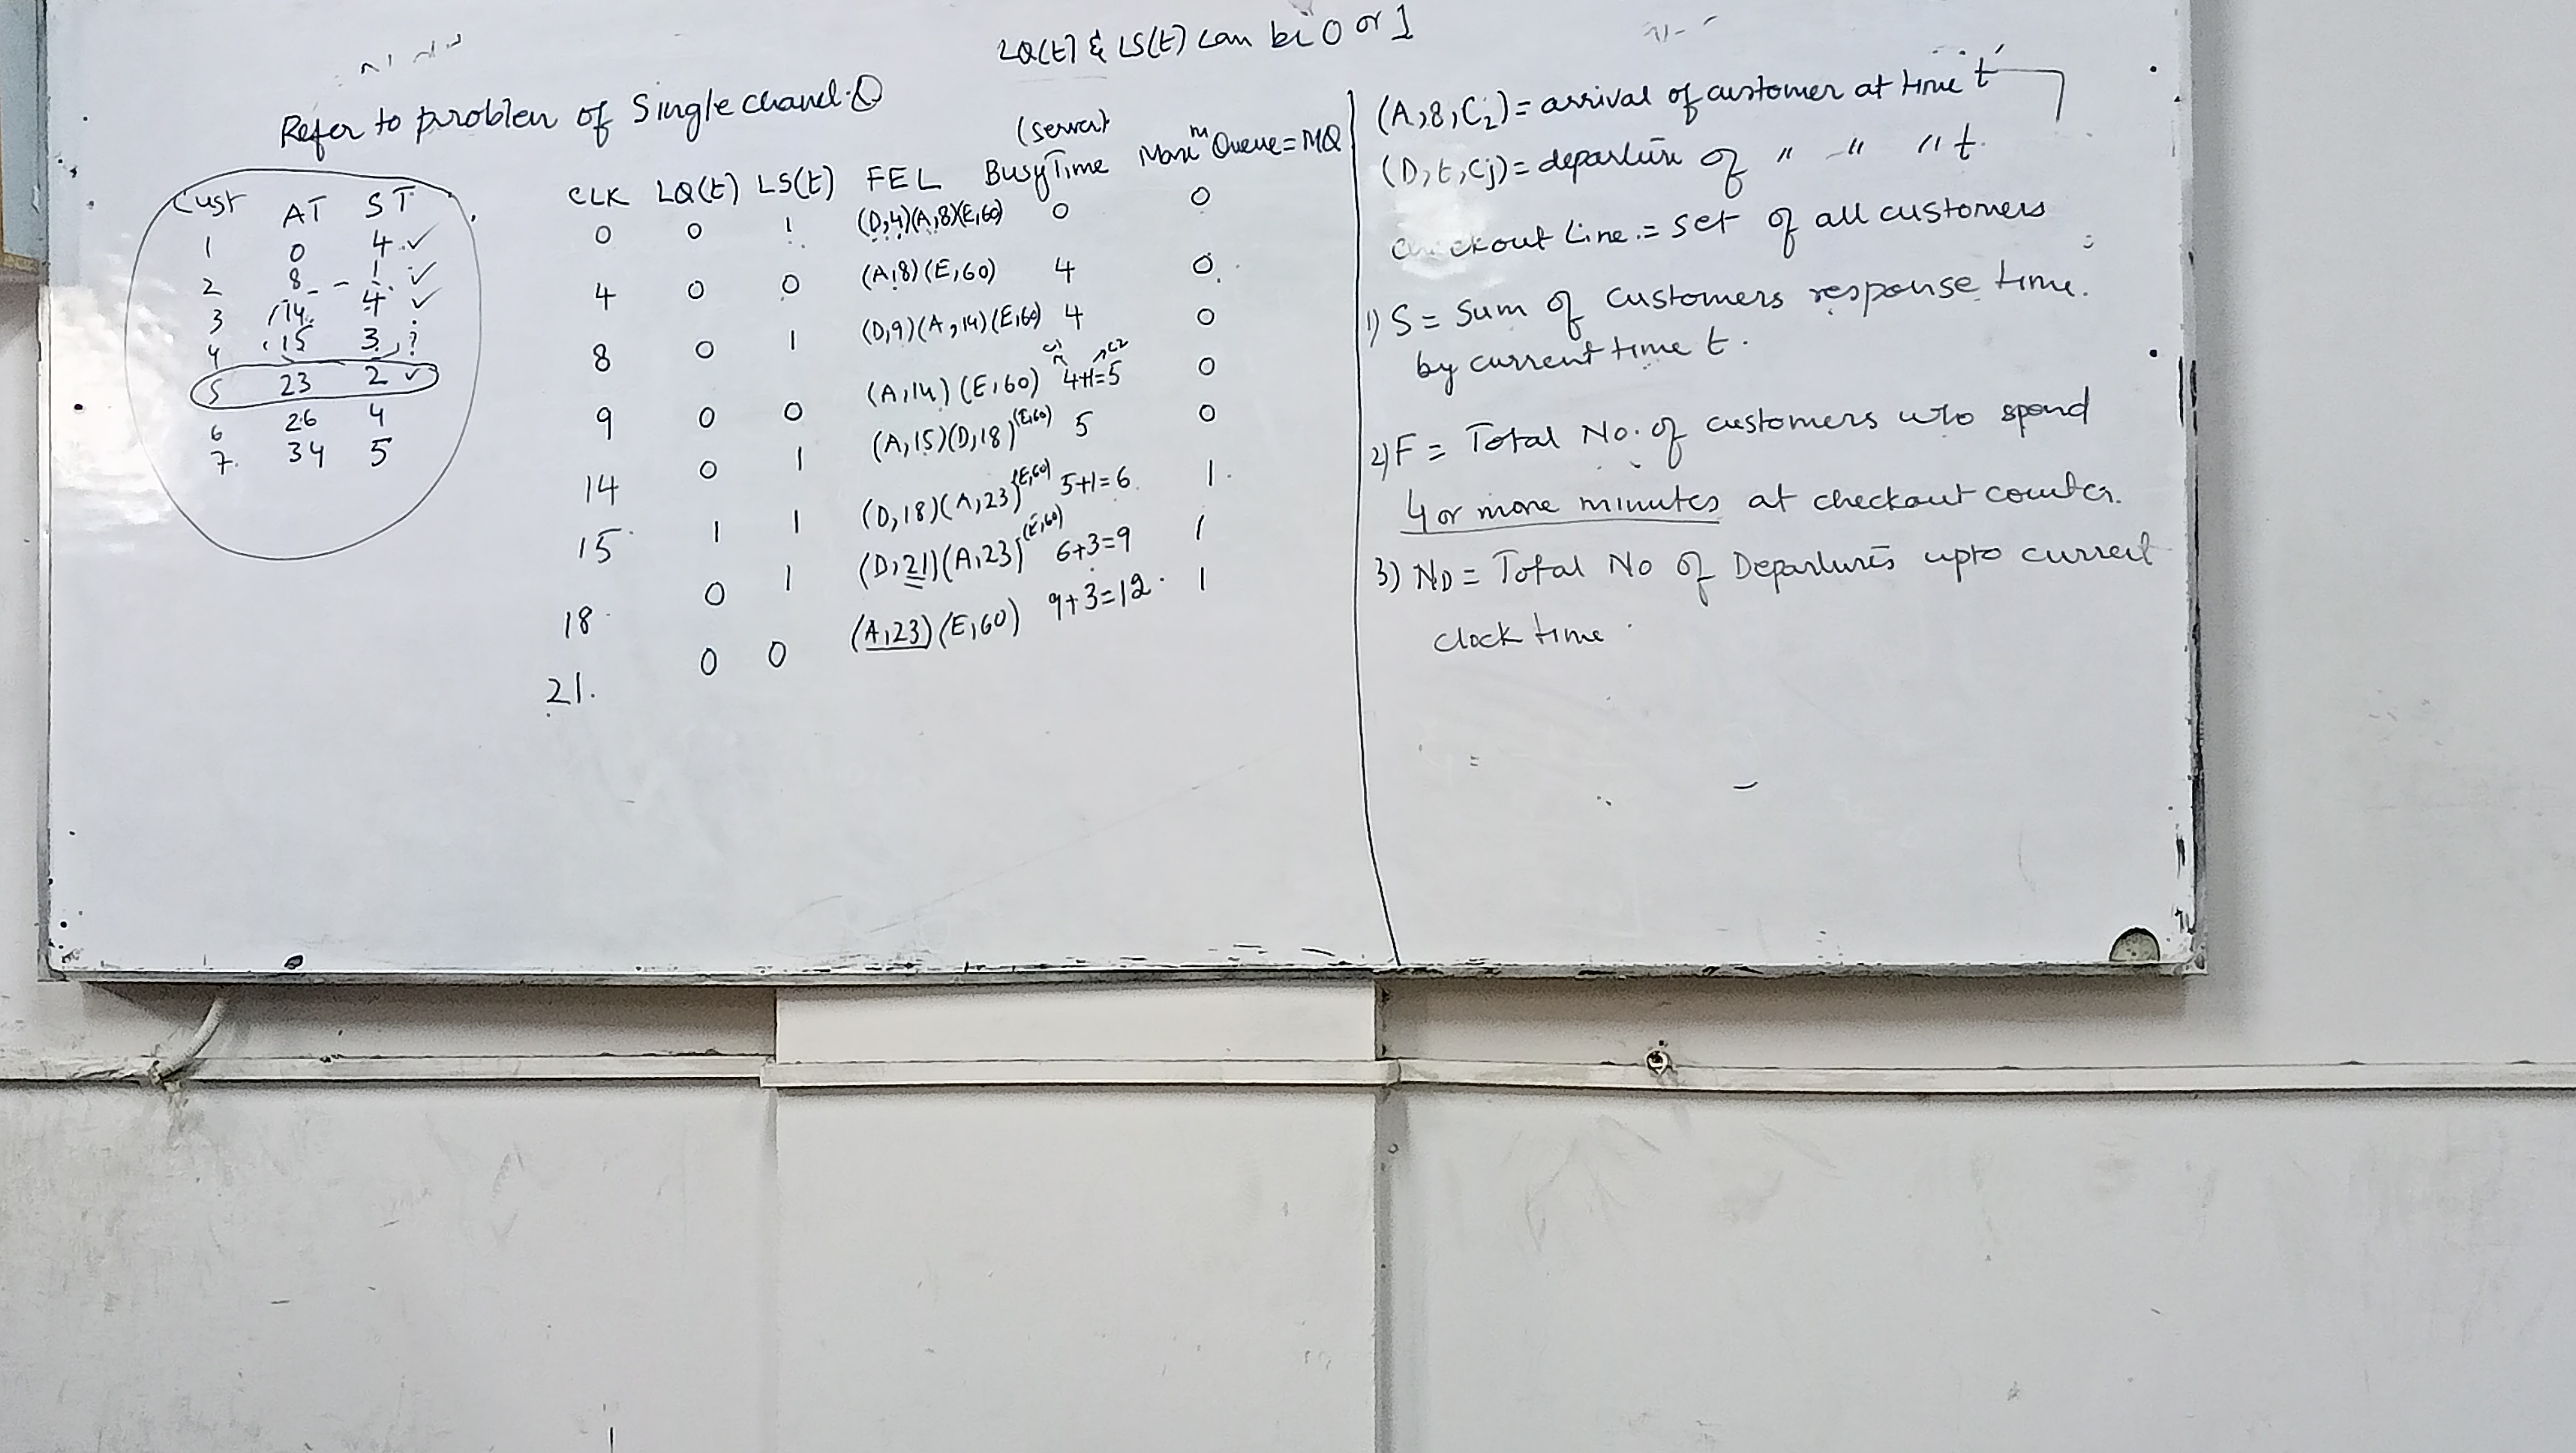 LQ(t) & LS(t) can be 0 or 1
Refer to problem of Single chanel Q
Cust AT ST
1 0 4 ✓
2 8 -- 1 ✓
3 14 4 ✓
4 15 3 ?
5 23 2 ✓
6 26 4
7. 34 5
(server)
CLK LQ(t) LS(t) FEL Busy Time Maxm Queue = MQ
0 0 1 (D,4)(A,8)(E,60) 0 0
4 0 0 (A,8)(E,60) 4 0
8 0 1 (D,9)(A,14)(E,60) 4 0
C1 C2
9 0 0 (A,14)(E,60) 4+1=5 0
14 0 1 (A,15)(D,18)(E,60) 5 0
15 1 1 (D,18)(A,23)(E,60) 5+1=6 1
18 0 1 (D,21)(A,23)(E,60) 6+3=9 1
21. 0 0 (A,23)(E,60) 9+3=12 1
(A,8,C2) = arrival of customer at time t
(D,t,Cj) = departure of " " " t.
checkout Line = set of all customers
1) S = Sum of customers response time.
by current time t.
2) F = Total No. of customers who spend
4 or more minutes at checkout counter.
3) ND = Total No of Departures upto current
clock time